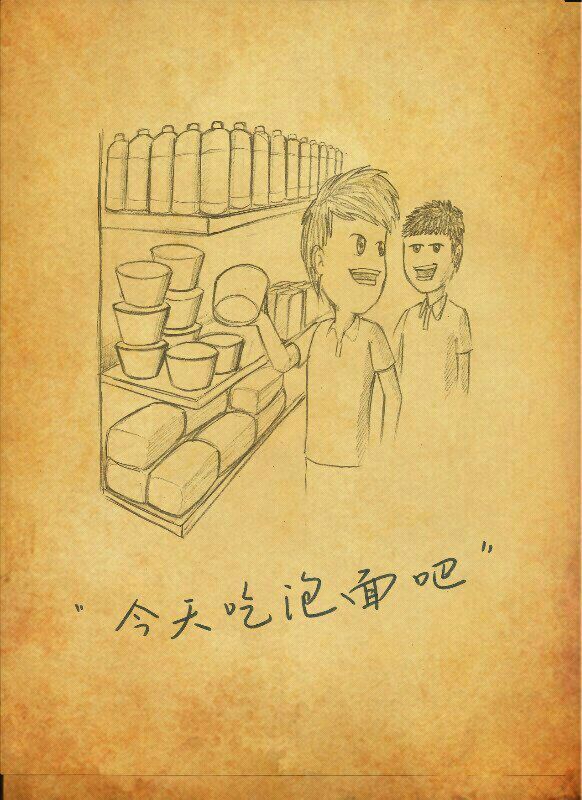 "今天吃泡面吧"